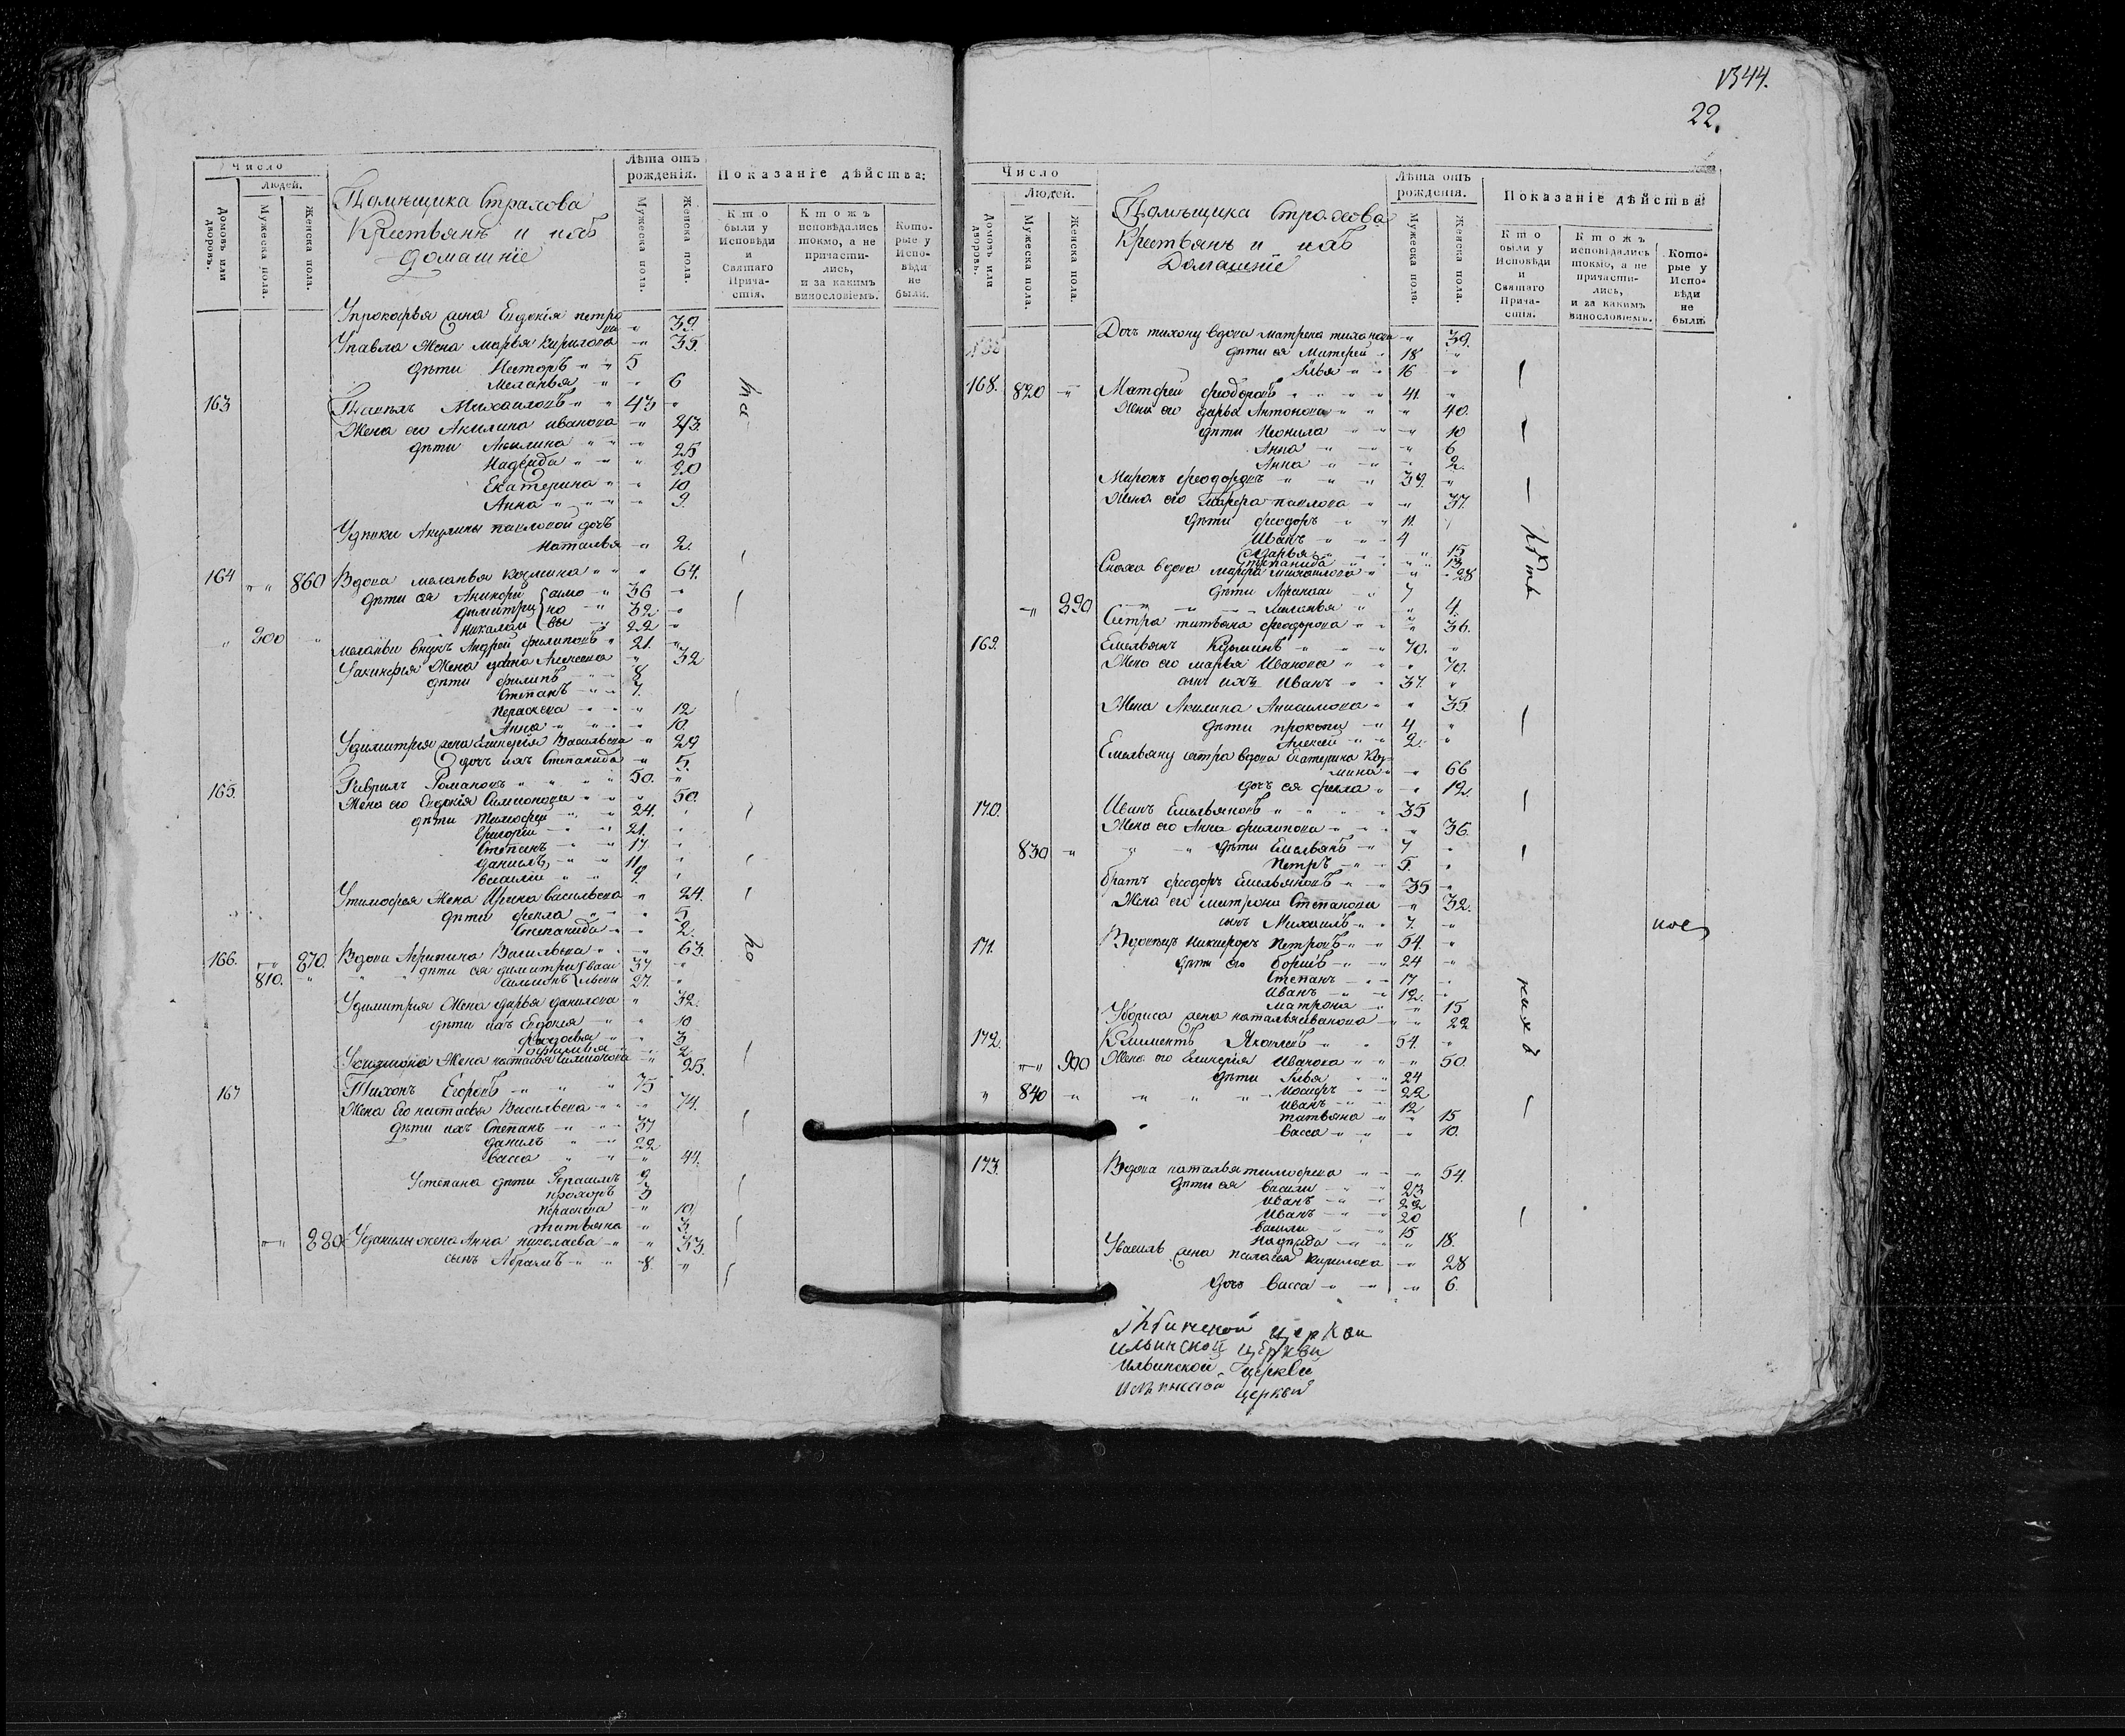 Число
Людей.
Домовъ или дворовъ.
Мужеска пола.
Женска пола.
Помѣщика Страхова
Крестьянъ и ихъ
домашніе
Лѣта отъ рожденія.
Мужеска пола.
Женска пола.
Показаніе дѣйства:
Кто были у Исповѣди и Святаго Причастія.
Ктожъ исповѣдались токмо, а не причастились, и за какимъ винословіемъ.
Которые у Исповѣди не были.
Упрокофья жена Евдокія петро
ва " 39.
Упавла Жена марья кирилова " 35.
дѣти Несторъ " " 5
Меланья " " 6
163 Павелъ Михаиловъ " " 43 "
Жена его Акилина иванова " 43.
дѣти Акилина " " " 25
Надежда " " " 20
Екатерина " " 10
Анна " " " " 9.
Удѣвки Акулины павловой дочь
Наталья " 2.
164 " " 860 Вдова меланья козмина " " " 64.
дѣти ея Аникей 36 "
димитри 32 "
николаи 22 "
" 800 " меланьи внукъ Андрей филиповъ " 21. "
жена Алексеева " 32
дѣти филипъ " " 8
Степанъ " " 7.
Параскева " " " 12
Анна " " " " 10.
Удимитрея жена Гликерія Васильева " 29
дочь ихъ Степанида " 5.
165. Гаврилъ Романовъ " " " " 50. "
Жена его Евдокія Симионова " " " 50.
дѣти Тимофей " " 24. "
Григорей " " 21. "
Степанъ " " 17 "
данилъ " " 11 "
василіи " " 9. "
Утимофея Жена Ирина васильева " 24.
дѣти фекла " " " 5
Степанида " " 2.
166. " " 870. Вдова Агрипина Васильева " " " 63.
810. " дѣти ея димитри васи 37 "
симионъ льевы 27. "
Удимитрия Жена дарья данилова " 32.
дѣти ихъ Евдокея " " 10
" 3
" 2
Усимиона Жена настасья симионова " 25.
167 Тихонъ Егоровъ " " " 75
Жена Его настасья Васильева " " " 74.
дѣти ихъ Степанъ " " " 37
данилъ " " 22
васса " " " 44.
Устепана дѣти Герасимъ 9
прохоръ 3
Параскева " 10
татьяна " 3
" " 880 Уданилы жена Анна николаева " " 33.
сынъ Абрамъ " " 8 "
1344.
22.
Число
Людей.
Домовъ или дворовъ.
Мужеска пола.
Женска пола.
Помѣщика Страхова
Крестьянъ и ихъ
Домашніе
Лѣта отъ рожденія.
Мужеска пола.
Женска пола.
Показаніе дѣйства:
Кто были у Исповѣди и Святаго Причастія.
Ктожъ исповѣдались токмо, а не причастились, и за какимъ винословіемъ.
Которые у Исповѣди не были.
Дочь тихону вдова матрена тихонова " 39.
дѣти ея 18 "
Илья " " 16 "
168. 820 " Матфей феодоровъ " " " " 41. "
Жена его дарья Антонова " " " 40.
дѣти Неонила " " " 10
Анна " " " 6
Анна " " " 2.
Миронъ феодоровъ " " " 39. "
Жена его павлова " " 37.
дѣти феодоръ " " 11. "
Иванъ " " " 4
Марья " " " 15
Степанида " " " 13
Сноха вдова марфа михаилова " " 28
дѣти 7
" 890 Меланья " " 4.
Сестра татьяна феодорова " " " 36.
169. Емельянъ Кузминъ " " " 70. "
Жена его марья Иванова " " " 70.
сынъ ихъ Иванъ " " 37. "
Жена Акилина Анисимова " " 35
дѣти прокопи " 4 "
Алексей " " 2. "
Емельяну сестра вдова Екатерина Коз
мина " " 66
дочь ея фекла " " 12.
170. Иванъ Емельяновъ " " " " 35
Жена его Анна филипова " " " " 36.
830 " " " дѣти Емельянъ " 7 "
Петръ " " 5. "
братъ феодоръ Емельяновъ " " 35 "
Жена его матрона Степанова " 32.
сынъ Михаилъ " " 7. "
171. Вдовецъ Никифоръ Петровъ " " 54. "
дѣти его борисъ " " 24 "
Степанъ " " 17 "
Иванъ " " 12. "
матрона " " 15
Убориса жена наталья иванова " " 22
172 Климентъ Яковлевъ " " 54. "
" " 900 Жена его Гликерия Иванова " " " 50.
дѣти Илья " " 24
" 840 " " " " " Иосифъ " " 22
иванъ " " 12
татьяна " " 15
васса " " " 10.
173. Вдова наталья тимофеева " " " 54.
дѣти ея васили " " 23
иванъ " " 22
иванъ " " 20
васили " " 15
надежда " " " 18.
Увасиль жена пелагея кирилова " 28
дочь васса " " " 6.
церкви
ильинской церкви
ильинской церкви
церкви